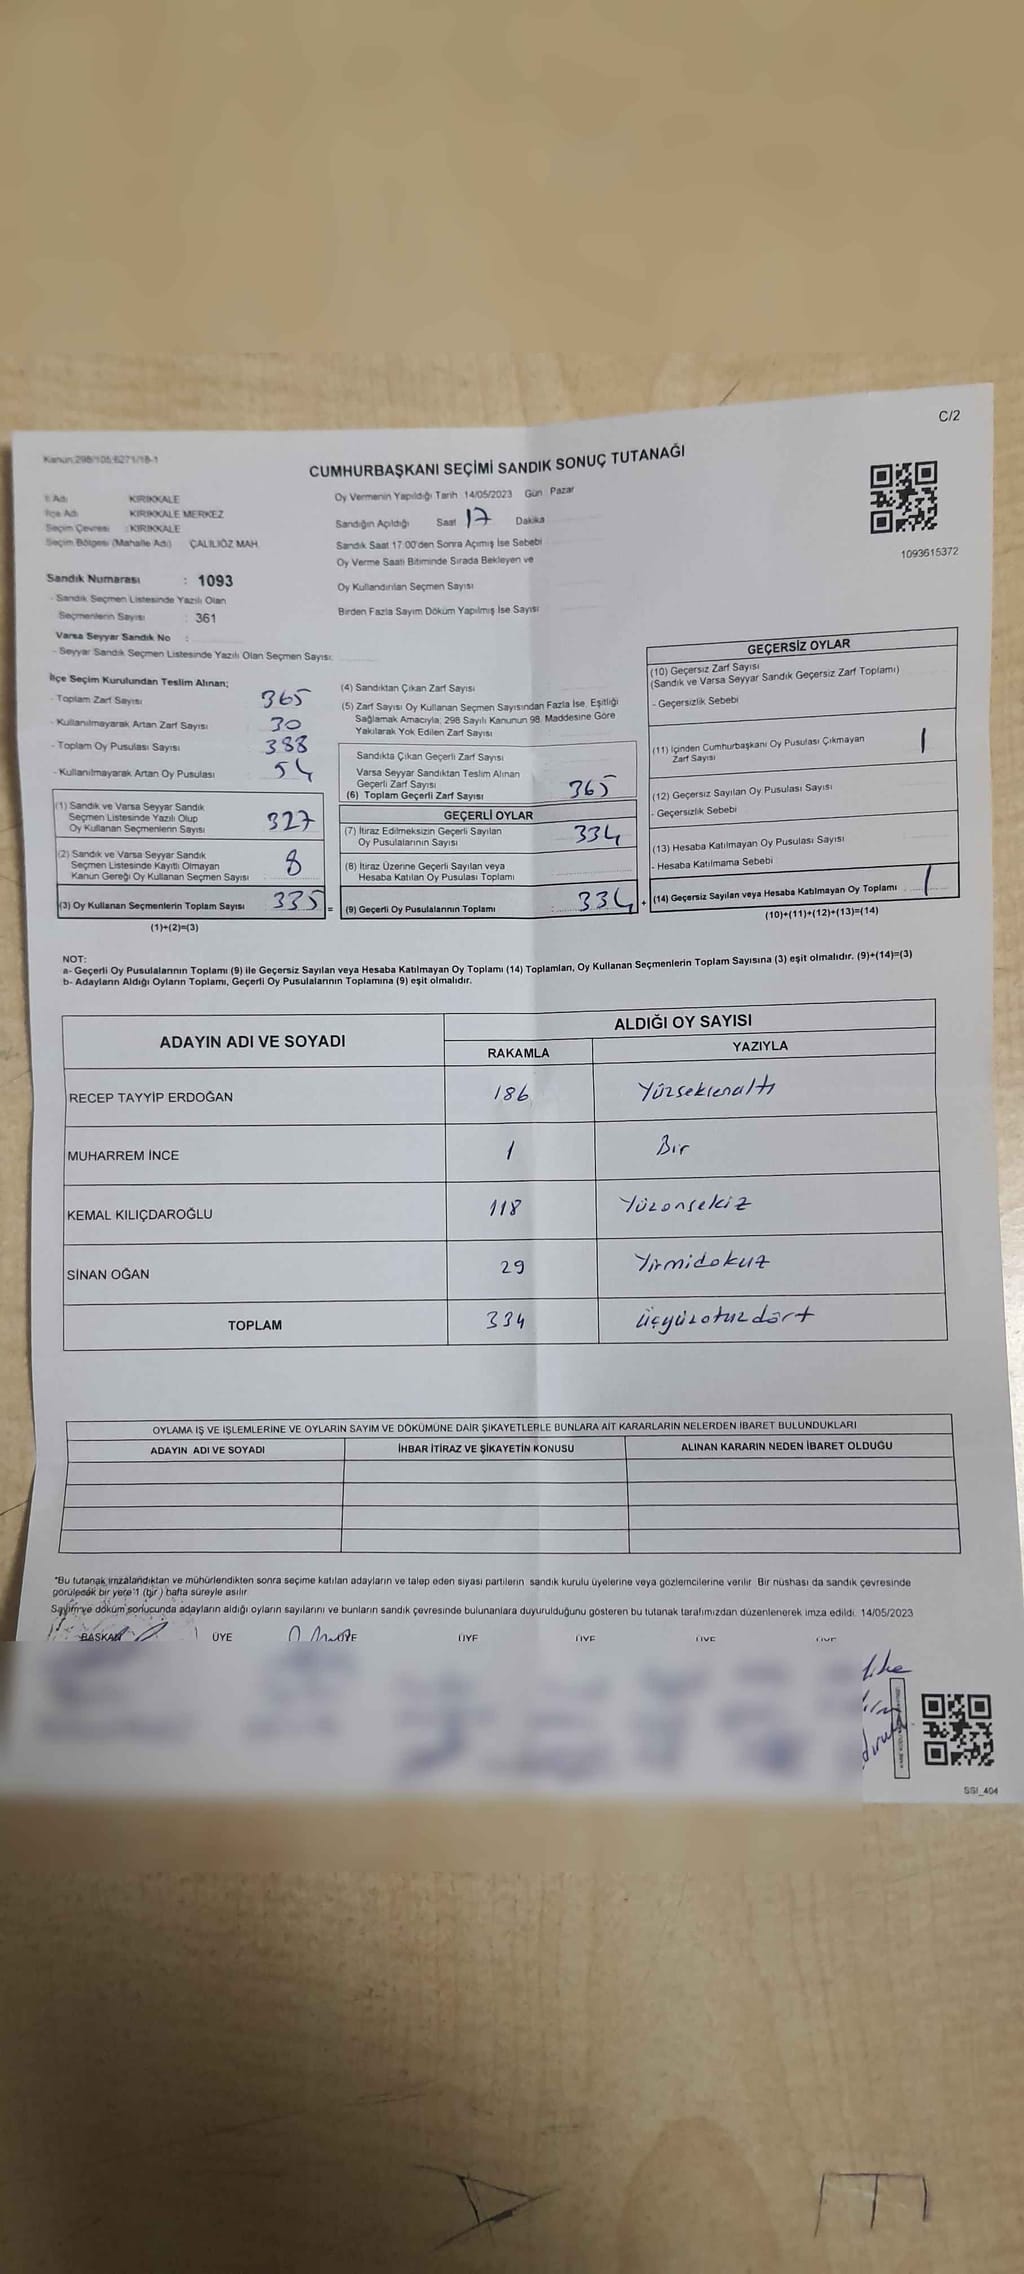 C/2
Kanun:298/105;6271/18-1
CUMHURBAŞKANI SEÇİMİ SANDIK SONUÇ TUTANAĞI
İl Adı KIRIKKALE
İlçe Adı KIRIKKALE MERKEZ
Seçim Çevresi : KIRIKKALE
Seçim Bölgesi (Mahalle Adı) ÇALILIÖZ MAH.
Sandık Numarası : 1093
- Sandık Seçmen Listesinde Yazılı Olan
Seçmenlerin Sayısı : 361
Varsa Seyyar Sandık No :
- Seyyar Sandık Seçmen Listesinde Yazılı Olan Seçmen Sayısı:
Oy Vermenin Yapıldığı Tarih 14/05/2023 Gün Pazar
Sandığın Açıldığı Saat 17 Dakika
Sandık Saat 17:00'den Sonra Açımış İse Sebebi
Oy Verme Saati Bitiminde Sırada Bekleyen ve
Oy Kullandırılan Seçmen Sayısı
Birden Fazla Sayım Döküm Yapılmış İse Sayısı
1093615372
İlçe Seçim Kurulundan Teslim Alınan;
- Toplam Zarf Sayısı 365
- Kullanılmayarak Artan Zarf Sayısı 30
- Toplam Oy Pusulası Sayısı 388
- Kullanılmayarak Artan Oy Pusulası 54
(1) Sandık ve Varsa Seyyar Sandık
Seçmen Listesinde Yazılı Olup
Oy Kullanan Seçmenlerin Sayısı 327
(2) Sandık ve Varsa Seyyar Sandık
Seçmen Listesinde Kayıtlı Olmayan
Kanun Gereği Oy Kullanan Seçmen Sayısı 8
(3) Oy Kullanan Seçmenlerin Toplam Sayısı 335 =
(1)+(2)=(3)
(4) Sandıktan Çıkan Zarf Sayısı
(5) Zarf Sayısı Oy Kullanan Seçmen Sayısından Fazla İse, Eşitliği
Sağlamak Amacıyla; 298 Sayılı Kanunun 98. Maddesine Göre
Yakılarak Yok Edilen Zarf Sayısı
Sandıkta Çıkan Geçerli Zarf Sayısı
Varsa Seyyar Sandıktan Teslim Alınan
Geçerli Zarf Sayısı
(6) Toplam Geçerli Zarf Sayısı 365
GEÇERLİ OYLAR
(7) İtiraz Edilmeksizin Geçerli Sayılan
Oy Pusulalarının Sayısı 334
(8) İtiraz Üzerine Geçerli Sayılan veya
Hesaba Katılan Oy Pusulası Toplamı
(9) Geçerli Oy Pusulalarının Toplamı : 334 +
GEÇERSİZ OYLAR
(10) Geçersiz Zarf Sayısı
(Sandık ve Varsa Seyyar Sandık Geçersiz Zarf Toplamı)
- Geçersizlik Sebebi
(11) İçinden Cumhurbaşkanı Oy Pusulası Çıkmayan
Zarf Sayısı 1
(12) Geçersiz Sayılan Oy Pusulası Sayısı
- Geçersizlik Sebebi
(13) Hesaba Katılmayan Oy Pusulası Sayısı
- Hesaba Katılmama Sebebi
(14) Geçersiz Sayılan veya Hesaba Katılmayan Oy Toplamı 1
(10)+(11)+(12)+(13)=(14)
NOT:
a- Geçerli Oy Pusulalarının Toplamı (9) ile Geçersiz Sayılan veya Hesaba Katılmayan Oy Toplamı (14) Toplamları, Oy Kullanan Seçmenlerin Toplam Sayısına (3) eşit olmalıdır. (9)+(14)=(3)
b- Adayların Aldığı Oyların Toplamı, Geçerli Oy Pusulalarının Toplamına (9) eşit olmalıdır.
ADAYIN ADI VE SOYADI ALDIĞI OY SAYISI
RAKAMLA YAZIYLA
RECEP TAYYİP ERDOĞAN 186 Yüzseksenaltı
MUHARREM İNCE 1 Bir
KEMAL KILIÇDAROĞLU 118 Yüzonsekiz
SİNAN OĞAN 29 Yirmidokuz
TOPLAM 334 üçyüzotuzdört
OYLAMA İŞ VE İŞLEMLERİNE VE OYLARIN SAYIM VE DÖKÜMÜNE DAİR ŞİKAYETLERLE BUNLARA AİT KARARLARIN NELERDEN İBARET BULUNDUKLARI
ADAYIN ADI VE SOYADI İHBAR İTİRAZ VE ŞİKAYETİN KONUSU ALINAN KARARIN NEDEN İBARET OLDUĞU
*Bu tutanak imzalandıktan ve mühürlendikten sonra seçime katılan adayların ve talep eden siyasi partilerin sandık kurulu üyelerine veya gözlemcilerine verilir. Bir nüshası da sandık çevresinde
görülecek bir yere 1 (bir) hafta süreyle asılır.
Sayım ve döküm sonucunda adayların aldığı oyların sayılarını ve bunların sandık çevresinde bulunanlara duyurulduğunu gösteren bu tutanak tarafımızdan düzenlenerek imza edildi. 14/05/2023
BAŞKAN ÜYE ÜYE ÜYE ÜYE ÜYE ÜYE
SSI_404